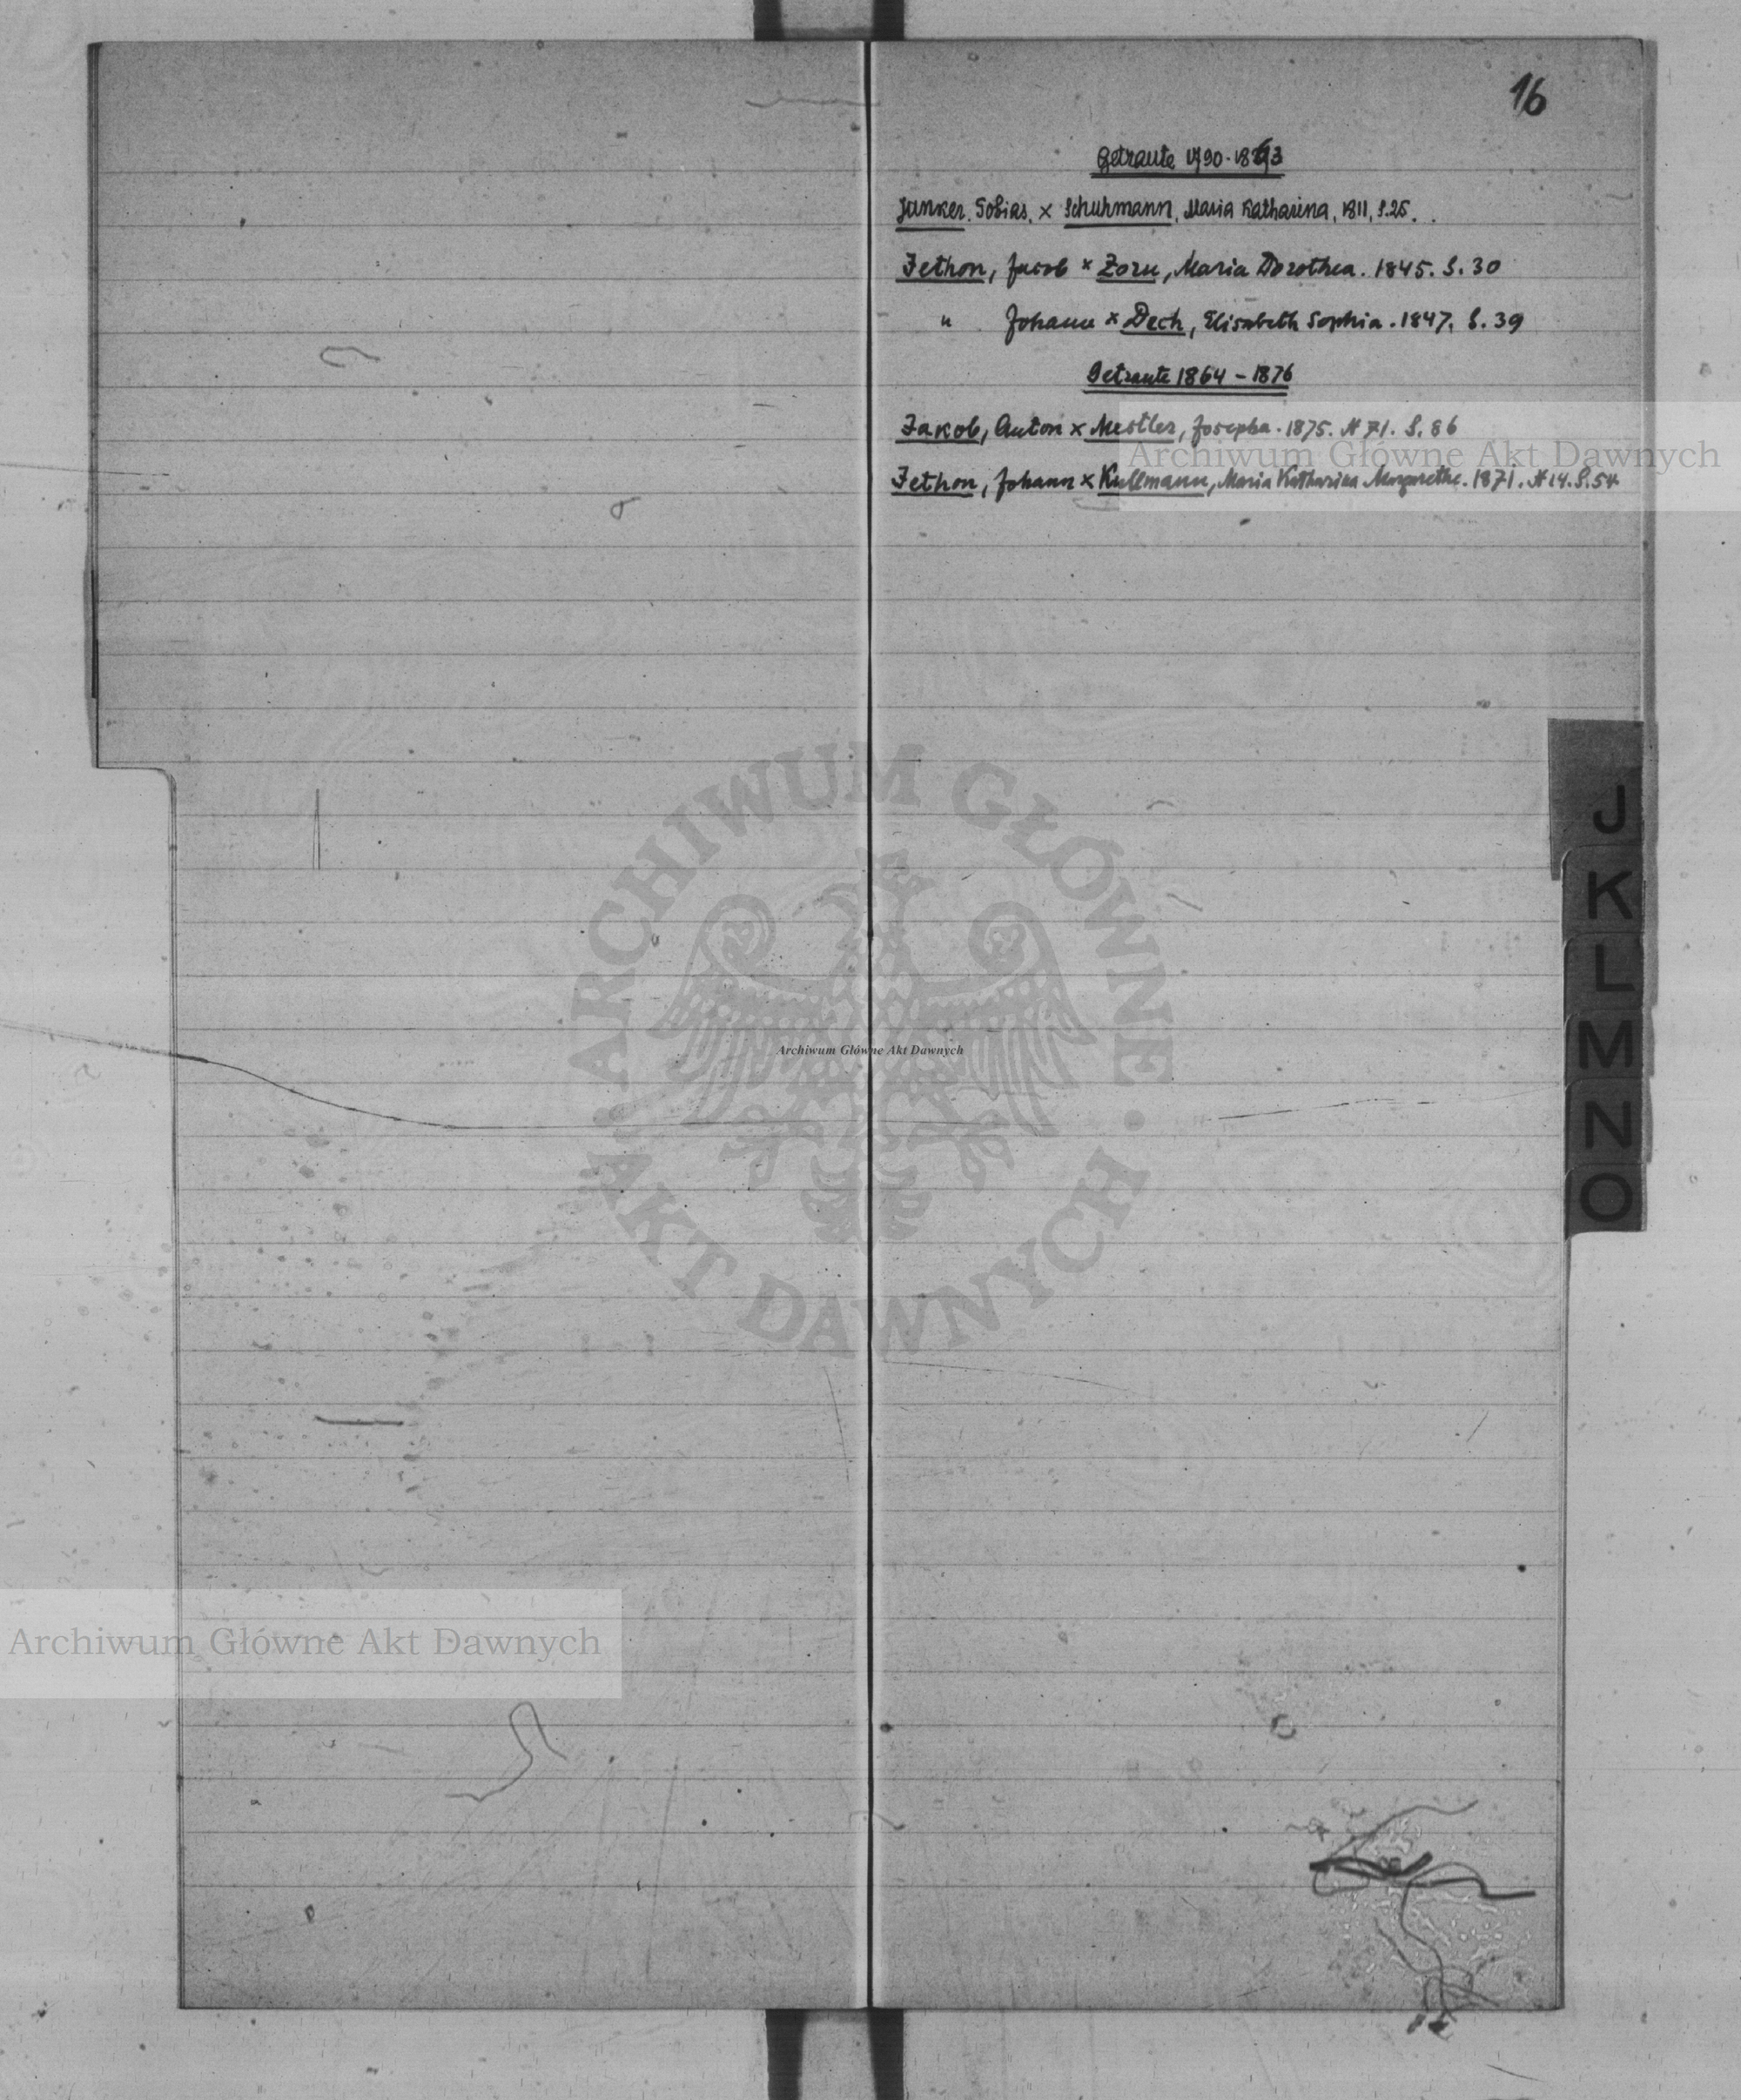 16
Getraute 1790-1863
Junker, Tobias, x Schuhmann, Maria Katharina, 1811, S.25.
Jethon, Jacob x Zorn, Maria Dorothea. 1845. S. 30
" Johann x Dech, Elisabeth Sophia. 1847. S. 39
Getraute 1864 - 1876
Jakob, Anton x Mestler, Josepha. 1875. N 71. S. 86
Archiwum Główne Akt Dawnych
Jethon, Johann x Kullmann, Maria Katharina Margarethe. 1871. N 14. S. 54
J
K
L
M
N
O
ARCHIWUM GŁÓWNE AKT DAWNYCH
Archiwum Główne Akt Dawnych
Archiwum Główne Akt Dawnych